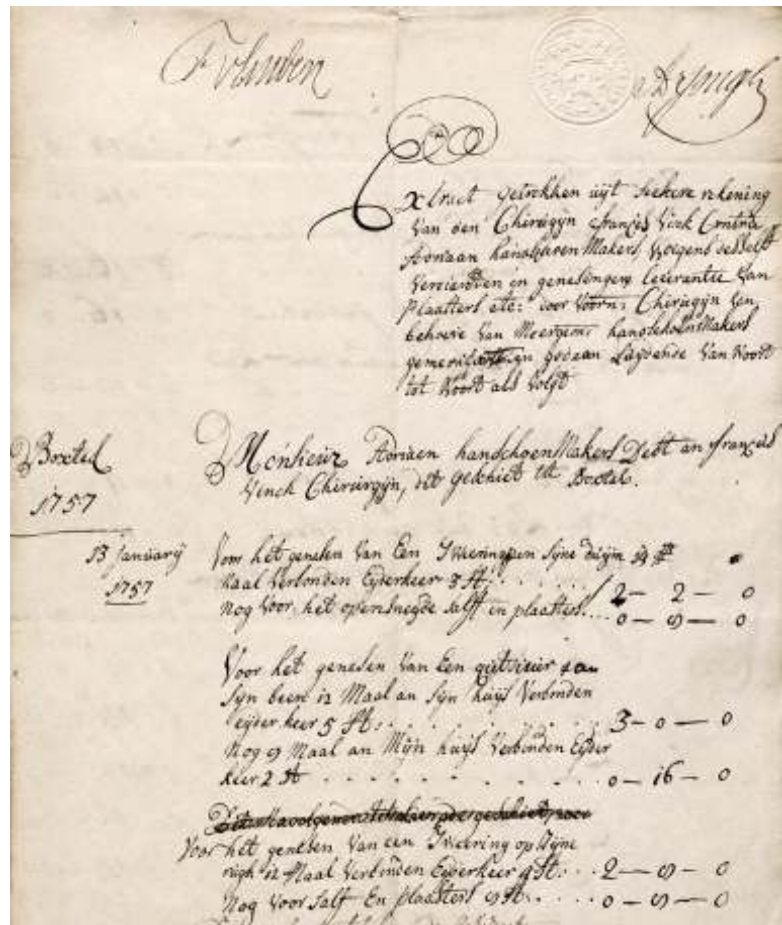 Extract getrokken uijt seekere rekening
van den Chirugijn françis Vink Contra
Adriaan handschoenMakers, wegens desselfs
verdienden in genesingen leverantie van
Plaasters etc: door voorn: Chirugijn ten
behoeve van Meergem: handschoenMakers
gedaan Luijdende van woort
tot woort als volgt
Boxtel
1757
Monsieur Adriaen handschoenMakers Debt an françis
Vinck Chirurgijn, dit geschiet tot Boxtel.
13 Januarij
1757
Voor het genesen van Een Sweering en sijne duijm 14
Maal verbonden Eijderkeer 3 st: . . . . . . 2 — 2 — 0
Nog voor het opensneijde salff en plaasters . . . 0 — 9 — 0
Voor het genesen van Een
sijn been 12 Maal an sijn huijs verbonden
eijder keer 5 st: . . . . . . 3 — 0 — 0
Nog 9 Maal an Mijn huijs verbonden Eijder
keer 2 st . . . . . . 0 — 16 — 0
Voor het genesen van een Sweering op sijne
rugh 12 Maal verbonden Eijderkeer 4 st: . . 2 — 9 — 0
Nog voor salf En plaasters 9 st: . . . . 0 — 9 — 0